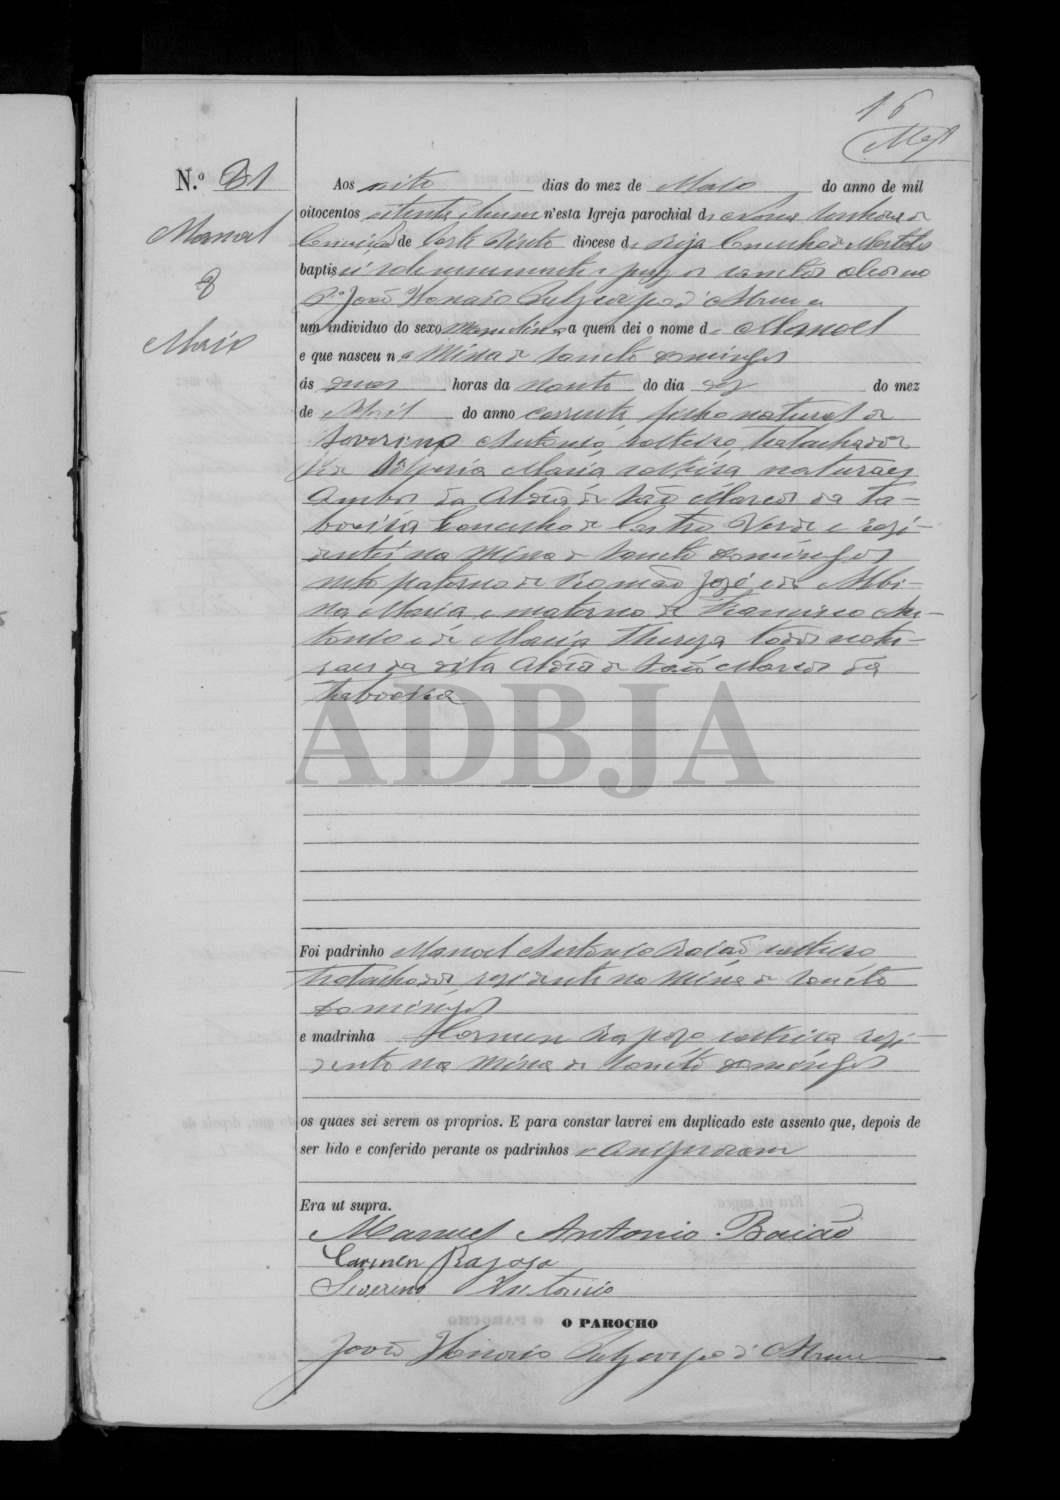 16
N.º 31
Manoel
8
Maio
Aos oito dias do mez de Maio do anno de mil
oitocentos oitenta e hum n'esta Igreja parochial de Nossa Senhora da
Conceição de Corte do Pinto diocese de Beja Concelho de Mertola
baptisei solemnemente e puz os sanctos oleos eu
P.e João Honorio d'
um individuo do sexo masculino a quem dei o nome de Manoel
e que nasceu na Mina de Sancto Domingos
ás horas da noute do dia dez do mez
de Abril do anno corrente filho natural de
Soverino Antonio, solteiro, trabalhador
e de Maria solteira naturaes
ambos da Aldêa de São Marcos da Ta-
boeira Concelho de Castro Verde e resi-
dentes na Mina de Sancto Domingos
neto paterno de Romão José e de Albi-
na Maria e materno de Francisco An-
tonio e de Maria Thereza todos natu-
raes da dita Aldêa de São Marcos da
Taboeira
ADBJA
Foi padrinho Manoel Antonio Baião solteiro
trabalhador residente na Mina de Sancto
Domingos
e madrinha Raposo solteira resi-
dente na Mina de Sancto Domingos
os quaes sei serem os proprios. E para constar lavrei em duplicado este assento que, depois de
ser lido e conferido perante os padrinhos assignaram
Era ut supra.
Manuel Antonio Baião
Carmen Raposo
Severino Antonio
O PAROCHO
João Honorio d'